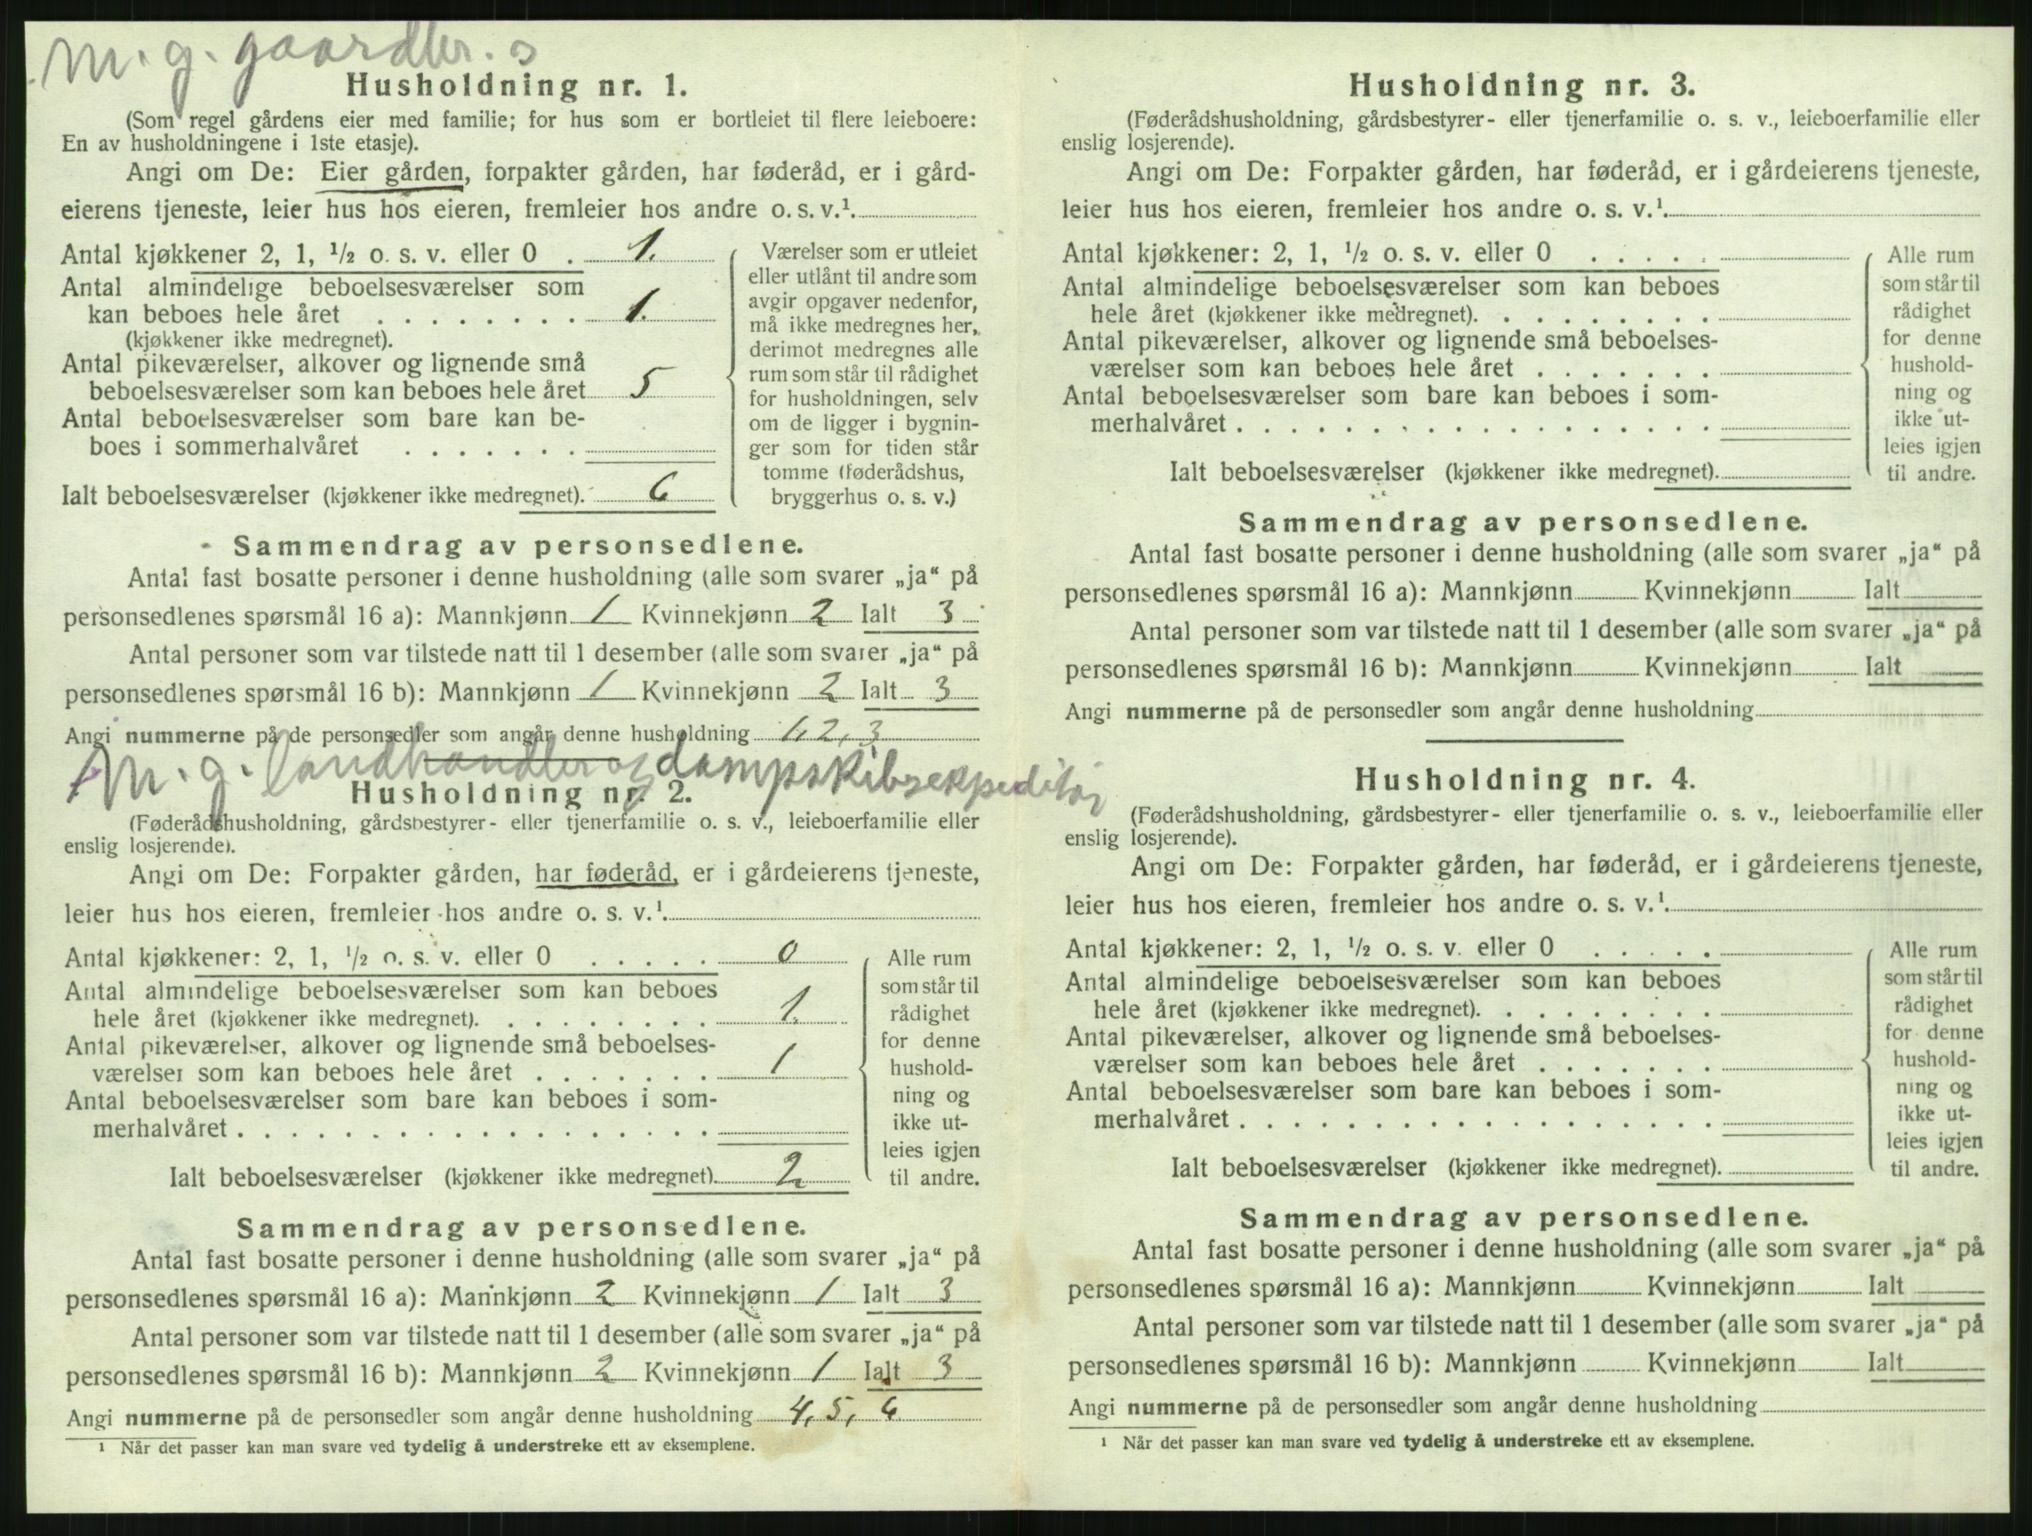 m. g. gaardbr. s
Husholdning nr. 1.
(Som regel gårdens eier med familie; for hus som er bortleiet til flere leieboere:
En av husholdningene i 1ste etasje).
Angi om De: Eier gården, forpakter gården, har føderåd, er i gård-
eierens tjeneste, leier hus hos eieren, fremleier hos andre o. s. v.¹.
Antal kjøkkener 2, 1, ½ o. s. v. eller 0 . 1.
Antal almindelige beboelsesværelser som
kan beboes hele året . . . . . . . . 1.
(kjøkkener ikke medregnet).
Antal pikeværelser, alkover og lignende små
beboelsesværelser som kan beboes hele året 5
Antal beboelsesværelser som bare kan be-
boes i sommerhalvåret . . . . . . .
Ialt beboelsesværelser (kjøkkener ikke medregnet). 6
Værelser som er utleiet
eller utlånt til andre som
avgir opgaver nedenfor,
må ikke medregnes her,
derimot medregnes alle
rum som står til rådighet
for husholdningen, selv
om de ligger i bygnin-
ger som for tiden står
tomme (føderådshus,
bryggerhus o. s. v.)
Sammendrag av personsedlene.
Antal fast bosatte personer i denne husholdning (alle som svarer „ja“ på
personsedlenes spørsmål 16 a): Mannkjønn 1 Kvinnekjønn 2 Ialt 3
Antal personer som var tilstede natt til 1 desember (alle som svarer „ja“ på
personsedlenes spørsmål 16 b): Mannkjønn 1 Kvinnekjønn 2 Ialt 3
Angi nummerne på de personsedler som angår denne husholdning 1, 2, 3
m. g. landhandler og dampskibsekspeditør
Husholdning nr. 2.
(Føderådshusholdning, gårdsbestyrer- eller tjenerfamilie o. s. v., leieboerfamilie eller
enslig losjerende).
Angi om De: Forpakter gården, har føderåd, er i gårdeierens tjeneste,
leier hus hos eieren, fremleier hos andre o. s. v.¹.
Antal kjøkkener: 2, 1, ½ o. s. v. eller 0 . . . . . 0
Antal almindelige beboelsesværelser som kan beboes
hele året (kjøkkener ikke medregnet). . . . . . . . . 1.
Antal pikeværelser, alkover og lignende små beboelses-
værelser som kan beboes hele året . . . . . . . 1
Antal beboelsesværelser som bare kan beboes i som-
merhalvåret . . . . . . . . . . . . . . . . . .
Ialt beboelsesværelser (kjøkkener ikke medregnet). 2
Alle rum
som står til
rådighet
for denne
hushold-
ning og
ikke ut-
leies igjen
til andre.
Sammendrag av personsedlene.
Antal fast bosatte personer i denne husholdning (alle som svarer „ja“ på
personsedlenes spørsmål 16 a): Mannkjønn 2 Kvinnekjønn 1 Ialt 3
Antal personer som var tilstede natt til 1 desember (alle som svarer „ja“ på
personsedlenes spørsmål 16 b): Mannkjønn 2 Kvinnekjønn 1 Ialt 3
Angi nummerne på de personsedler som angår denne husholdning 4, 5, 6
¹ Når det passer kan man svare ved tydelig å understreke ett av eksemplene.
Husholdning nr. 3.
(Føderådshusholdning, gårdsbestyrer- eller tjenerfamilie o. s. v., leieboerfamilie eller
enslig losjerende).
Angi om De: Forpakter gården, har føderåd, er i gårdeierens tjeneste,
leier hus hos eieren, fremleier hos andre o. s. v.¹.
Antal kjøkkener: 2, 1, ½ o. s. v. eller 0 . . . . .
Antal almindelige beboelsesværelser som kan beboes
hele året (kjøkkener ikke medregnet). . . . . . . . .
Antal pikeværelser, alkover og lignende små beboelses-
værelser som kan beboes hele året . . . . . . .
Antal beboelsesværelser som bare kan beboes i som-
merhalvåret . . . . . . . . . . . . . . . . . .
Ialt beboelsesværelser (kjøkkener ikke medregnet).
Alle rum
som står til
rådighet
for denne
hushold-
ning og
ikke ut-
leies igjen
til andre.
Sammendrag av personsedlene.
Antal fast bosatte personer i denne husholdning (alle som svarer „ja“ på
personsedlenes spørsmål 16 a): Mannkjønn Kvinnekjønn Ialt
Antal personer som var tilstede natt til 1 desember (alle som svarer „ja“ på
personsedlenes spørsmål 16 b): Mannkjønn Kvinnekjønn Ialt
Angi nummerne på de personsedler som angår denne husholdning
Husholdning nr. 4.
(Føderådshusholdning, gårdsbestyrer- eller tjenerfamilie o. s. v., leieboerfamilie eller
enslig losjerende).
Angi om De: Forpakter gården, har føderåd, er i gårdeierens tjeneste,
leier hus hos eieren, fremleier hos andre o. s. v.¹.
Antal kjøkkener: 2, 1, ½ o. s. v. eller 0 . . . . .
Antal almindelige beboelsesværelser som kan beboes
hele året (kjøkkener ikke medregnet). . . . . . . . .
Antal pikeværelser, alkover og lignende små beboelses-
værelser som kan beboes hele året . . . . . . .
Antal beboelsesværelser som bare kan beboes i som-
merhalvåret . . . . . . . . . . . . . . . . . .
Ialt beboelsesværelser (kjøkkener ikke medregnet).
Alle rum
som står til
rådighet
for denne
hushold-
ning og
ikke ut-
leies igjen
til andre.
Sammendrag av personsedlene.
Antal fast bosatte personer i denne husholdning (alle som svarer „ja“ på
personsedlenes spørsmål 16 a): Mannkjønn Kvinnekjønn Ialt
Antal personer som var tilstede natt til 1 desember (alle som svarer „ja“ på
personsedlenes spørsmål 16 b): Mannkjønn Kvinnekjønn Ialt
Angi nummerne på de personsedler som angår denne husholdning
¹ Når det passer kan man svare ved tydelig å understreke ett av eksemplene.